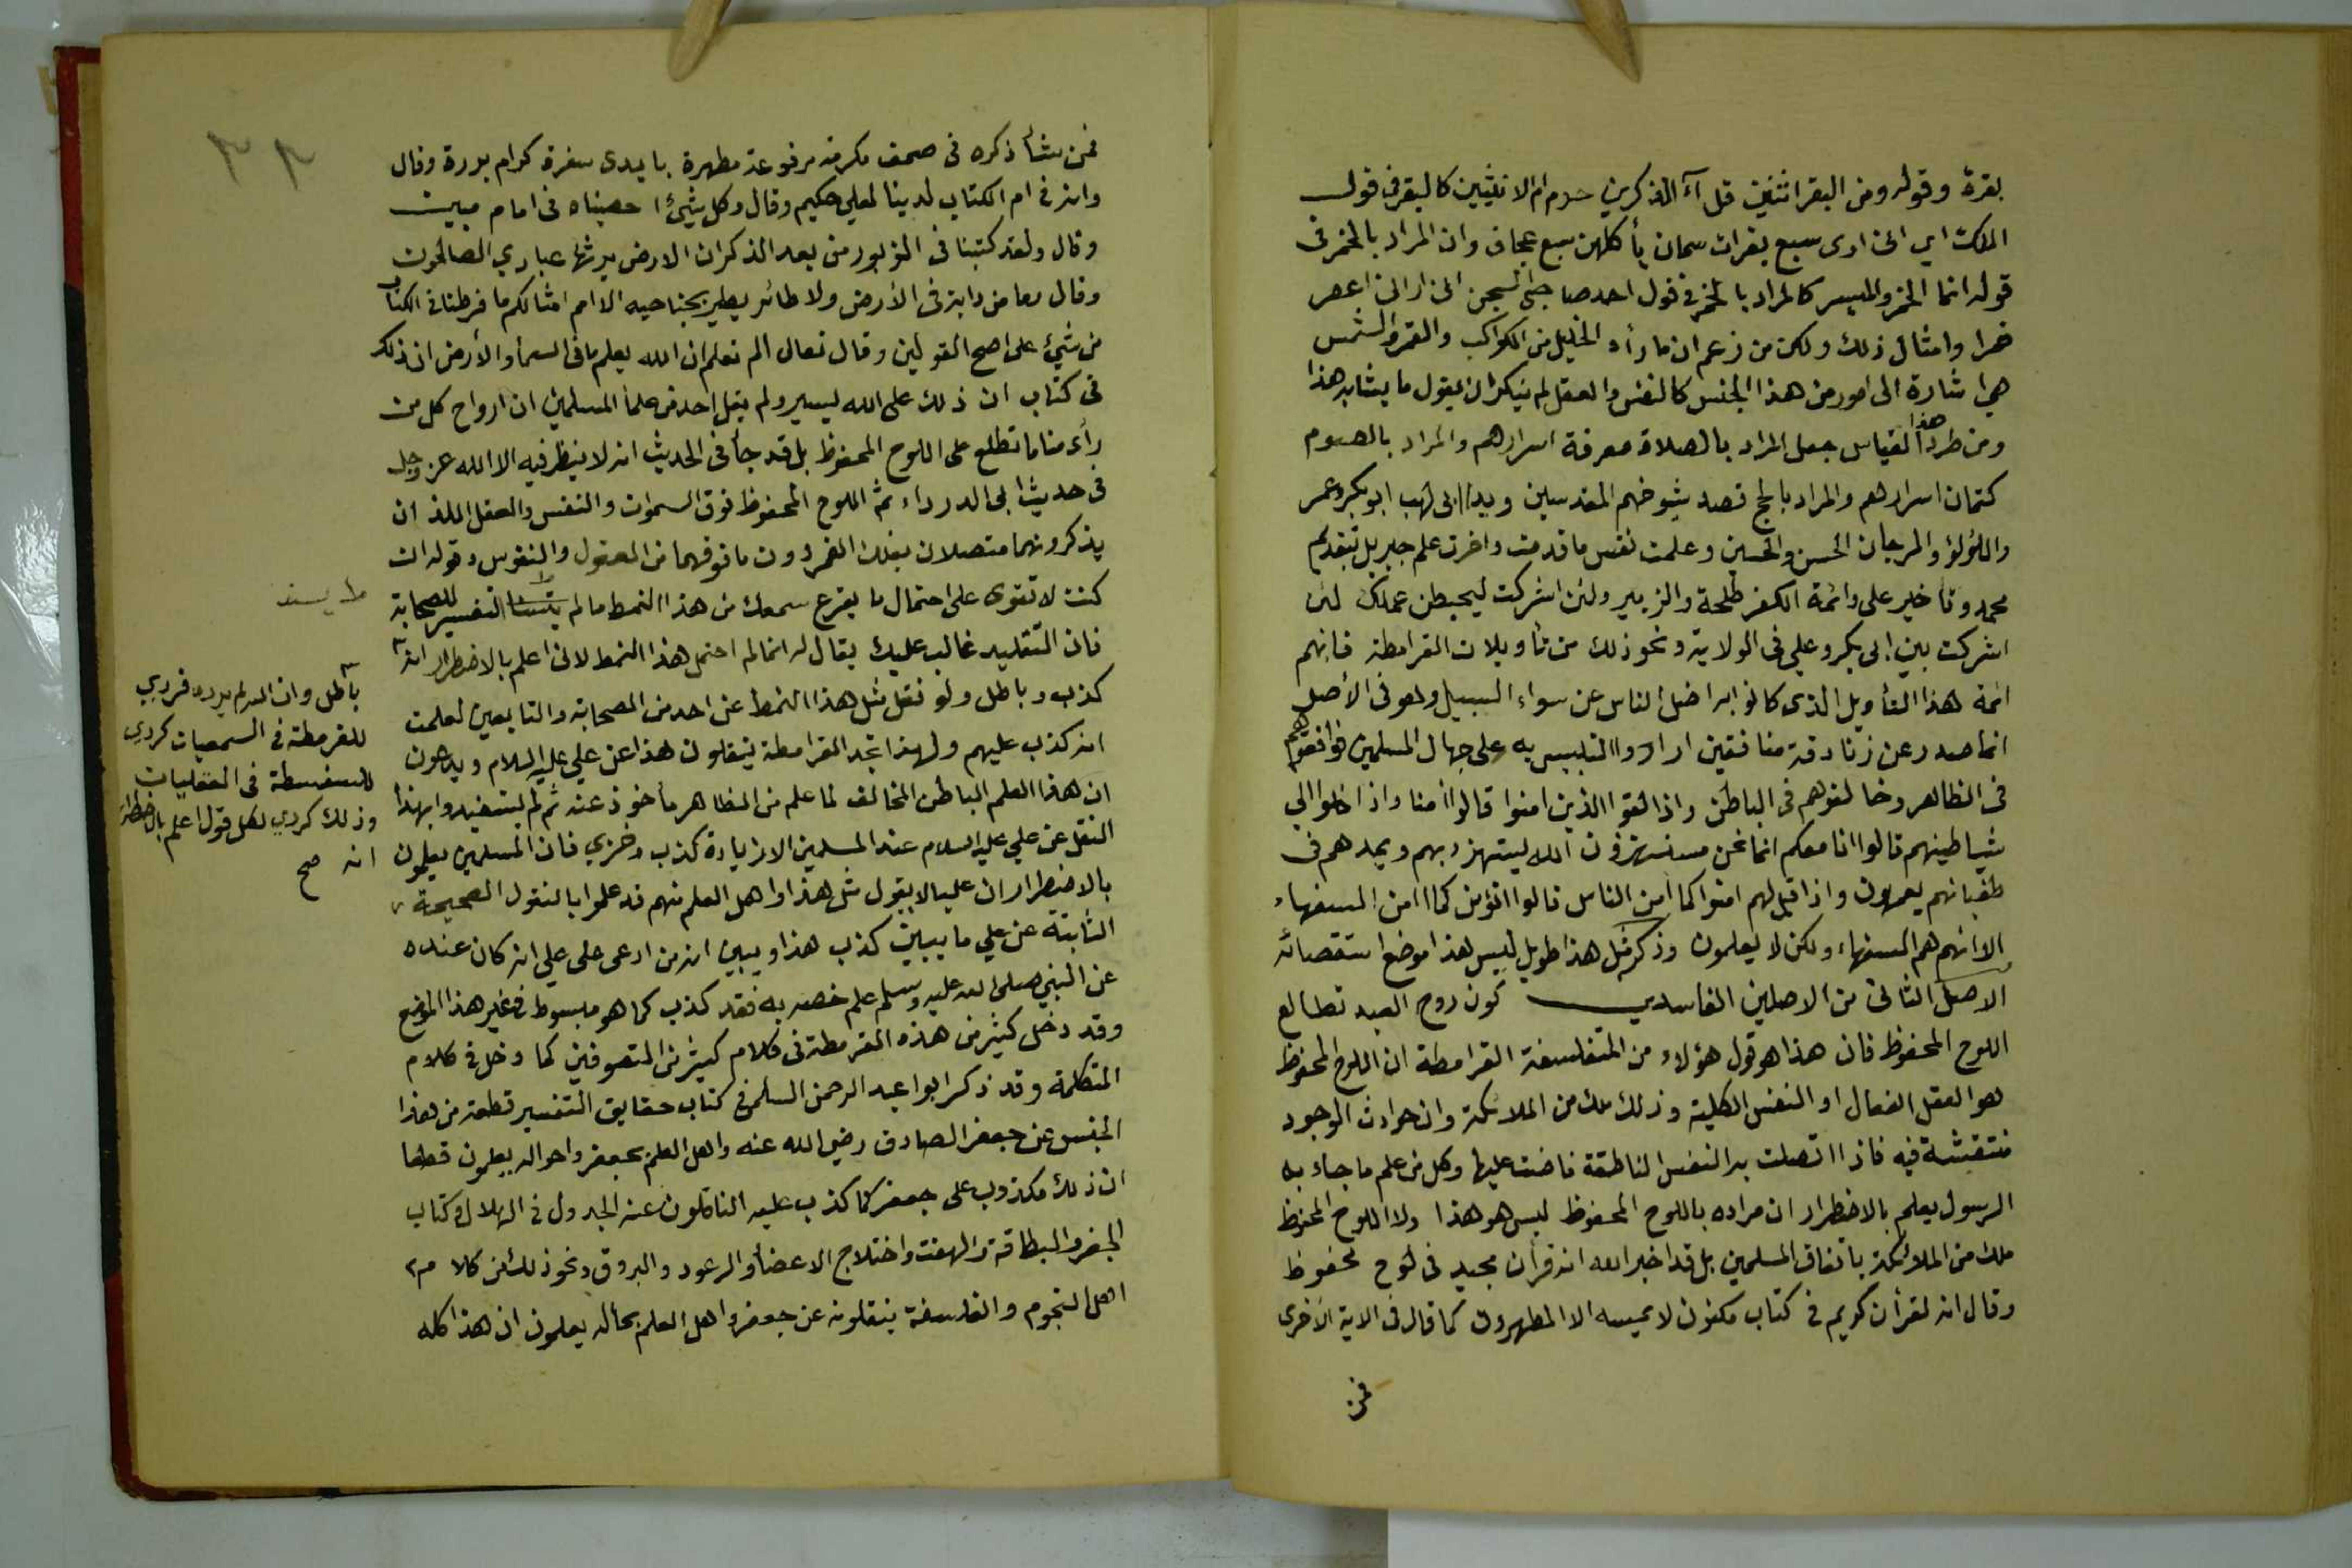 بقرة وقوله ومن البقر اثنين قل آ الذكرين حرم ام الانثيين كالبقر في قول
الملك اي اني ارى سبع بقرات سمان يأكلهن سبع عجاف وان المراد بالخمر في
قوله انما الخمر والميسر كالمراد بالخمر في قول احد صاحبي السجن اني اراني اعصر
خمرا وامثال ذلك ولكن من زعم ان ما رأه الخليل من الكواكب والقمر والشمس
هي اشارة الى امور من هذا الجنس كالنفس والعقل لم ينكر ان يقول ما يشابه هذا
ومن طرد هذا القياس جعل المراد بالصلاة معرفة اسرارهم والمراد بالصوم
كتمان اسرارهم والمراد بالحج قصد شيوخهم المقدسين ويدا ابي لهب ابو بكر وعمر
واللؤلؤ والمرجان الحسن والحسين وعلمت نفس ما قدمت واخرت علم جبريل بتقديم
محمد وتأخير علي وائمة الكفر طلحة والزبير ولئن اشركت ليحبطن عملك لئن
اشركت بين ابي بكر وعلي في الولاية ونحو ذلك من تأويلات القرامطة فانهم
ائمة هذا التأويل الذي كانوا به اضل الناس عن سواء السبيل وهو في الأصل
انما صدر عن زنادقة منافقين ارادوا التلبيس به على جهال المسلمين فوافقوهم
في الظاهر وخالفوهم في الباطن واذا لقوا الذين امنوا قالوا أمنا واذا خلوا الي
شياطينهم قالوا انا معكم انما نحن مستهزؤن الله يستهزء بهم ويمدهم في
طغيانهم يعمهون واذا قيل لهم امنوا كما أمن الناس قالوا انؤمن كما امن السفهاء
الا انهم هم السفهاء ولكن لا يعلمون وذكر مثل هذا طويل ليس هذا موضع استقصائه
الاصل الثاني من الاصلين الفاسدين كون روح العبد تطالع
اللوح المحفوظ فان هذا هو قول هؤلاء من المتفلسفة القرامطة ان اللوح المحفوظ
هو العقل الفعال او النفس الكلية وذلك ملك من الملائكة وان حوادث الوجود
منتقشة فيه فاذا اتصلت به النفس الناطقة فاضت عليها وكل من علم ما جاء به
الرسول يعلم بالاضطرار ان مراده باللوح المحفوظ ليس هو هذا ولا اللوح المحفوظ
ملك من الملائكة باتفاق المسلمين بل قد اخبر الله انه قرأن مجيد في لوح محفوظ
وقال انه لقرأن كريم في كتاب مكنون لا يمسه الا المطهرون كما قال في الاية الأخرى
فمن
٣٣
فمن شأ ذكره في صحف مكرمة مرفوعة مطهرة بايدى سفرة كرام بررة وقال
وانه في ام الكتاب لدينا لعلي حكيم وقال وكل شيئ احصيناه في امام مبين
وقال ولقد كتبنا في الزبور من بعد الذكر ان الارض يرثها عبادي الصالحون
وقال وما من دابة في الأرض ولا طائر يطير بجناحيه الا امم امثالكم ما فرطنا في الكتاب
من شيئ على اصح القولين وقال تعالى الم تعلم ان الله يعلم ما في السمأ والأرض ان ذلك
في كتاب ان ذلك على الله يسير ولم يقل احد من علمأ المسلمين ان ارواح كل من
رأى مناما تطلع على اللوح المحفوظ بل قد جأ في الحديث انه لا ينظر فيه الا الله عز وجل
في حديث ابى الدرداء ثم اللوح المحفوظ فوق السموات والنفس والعقل اللذان
يذكرونهما متصلان بفلك القمر دون ما فوقهما من العقول والنفوس وقوله ان
كنت لا تقوى على احتمال ما يقرع سمعك من هذا النمط ما لم التفسير للصحابة
فان التقليد غالب عليك يقال له انما لم احتمل هذا النمط لاني اعلم بالاضطرار انه
كذب وباطل ولو نقل مثل هذا النمط عن احد من الصحابة والتابعين لعلمت
انه كذب عليهم ولهذا تجد القرامطة ينقلون هذا عن علي عليه السلام ويدعون
ان هذا العلم الباطن المخالف لما علم من الظاهر مأخوذ عنه ثم لم يستفيدوا بهذا
النقل عن علي عليه السلام عند المسلمين الا زيادة كذب وخزي فان المسلمين يعلمون
بالاضطرار ان عليا لا يقول مثل هذا واهل العلم منهم قد علموا بالنقول الصحيحة
الثابتة عن علي ما يبين كذب هذا ويبين انه من ادعى على علي انه كان عنده
عن النبي صلى الله عليه وسلم علم خصه به فقد كذب كما هو مبسوط في غير هذا الموضع
وقد دخل كثير من هذه القرمطة في كلام كثير من المتصوفين كما دخل في كلام
المتكلمة وقد ذكر ابوا عبد الرحمن السلمي في كتاب حقايق التفسير قطعة من هذا
الجنس عن جعفر الصادق رضي الله عنه واهل العلم بجعفر واحواله يعلمون قطعا
ان ذلك مكذوب على جعفر كما كذب عليه الناقلون عنه الجدول في الهلال وكتاب
الجفر والبطاقة والهفت واختلاج الاعضأ والرعود والبروق ونحو ذلك من كلام
اهل النجوم والفلسفة ينقلونه عن جعفر واهل العلم بحاله يعلمون ان هذا كله
يسند
باطل وان الله لم يرده فردي
للقرمطة في السمعيات كردي
للسفسطة في العقليات
وذلك كردي لكل قول اعلم بالاضطرار
انه صح